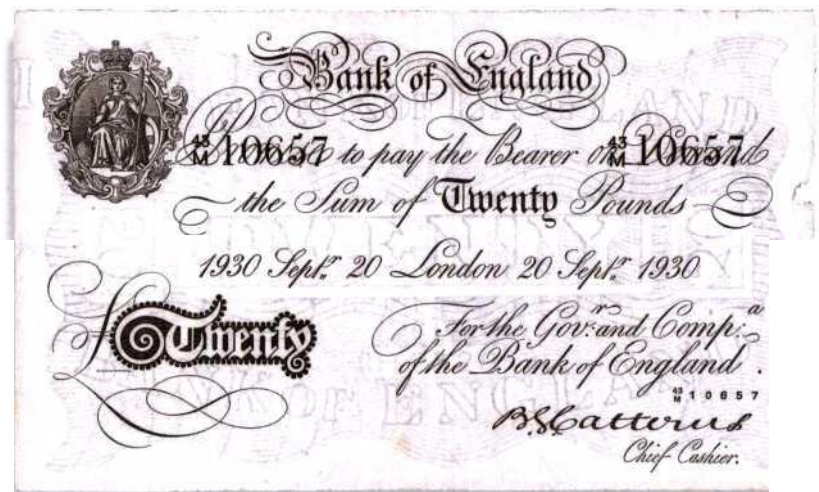 Bank of England
43/M 10657 to pay the Bearer on 43/M 10657
the Sum of Twenty Pounds
1930 Septr. 20 London 20 Septr. 1930
£ Twenty
For the Govr. and Compa.
of the Bank of England.
43/M 10657
B.G. Catterns
Chief Cashier.